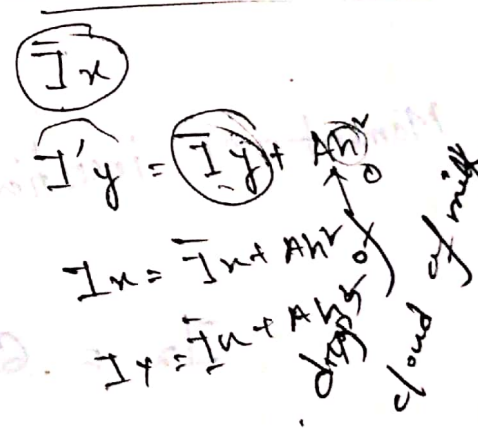 Īx
I'y = Īy + Ah² 0
Ix = Īx + Ah²
Iy = Īx + Ah²
drops of
cloud of milk